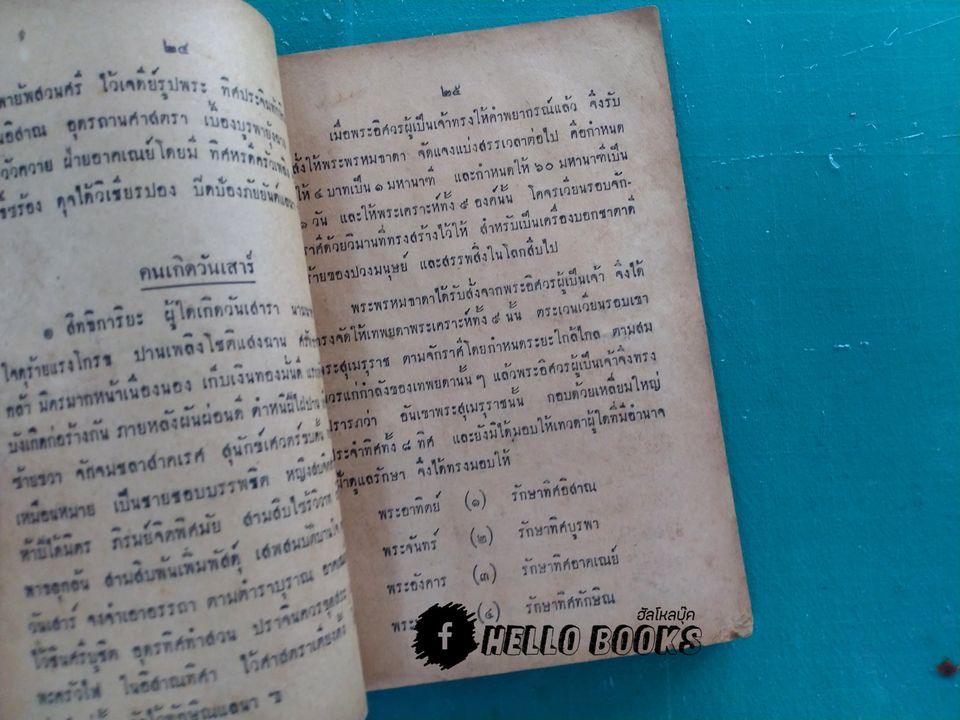 ๒๔
พายัพสวนศรี ไว้เจดีย์รูปพระ ทิศประจิม
อิสาณ อุตรถานศาสตรา เบื้องบูรพา
วัวควาย ฝ่ายอาคเณย์โดยมี ทิศหรดี
ร้อง ดุจได้วิเชียรปอง ปิดป้องภัย
คนเกิดวันเสาร์
๑ สิทธิการิยะ ผู้ใดเกิดวันเสารา
ใจดุร้ายแรงโกรธ ปานเพลิงโชติแสงฉาน
กล้า มิตรมากหน้าเนืองนอง เก็บเงินทองมั่นดี
บังเกิดก่อร้างกัน ภายหลังผันผ่อนดี ตำหนิมี
ซ้ายขวา จักจมชลาสาคเรศ สุนักข์เศวตร์ขบ
เหมือนหมาย เป็นชายชอบบรรพชิต หญิง
ห้ามิได้มิตร ภิรมย์จิตพิศมัย สามสิบไร้ริวาท
พาชลุกลัน สามสิบพันเพิ่มพัสดุ์ เสพสมบัติ
วันเสาร์ จงจำเอาอรรถา ตามตำราบุราณ
ไว้ชินศรีบูชิต อุตรทิศทำสวน ปราจินควรขุดสระ
พะครัวไฟ ในอิสาณทิศา ไว้ศาสตรา
ทักษิณแลนา ฯ
๒๕
เมื่อพระอิศวรผู้เป็นเจ้าทรงให้คำพยากรณ์แล้ว จึ่งรับ
สั่งให้พระพรหมธาดา จัดแจงแบ่งสรรเวลาต่อไป คือกำหนด
ให้ ๔ บาทเป็น ๑ มหานาฑี และกำหนดให้ ๖๐ มหานาฑีเป็น
๑ วัน และให้พระเคราะห์ทั้ง ๙ องค์นั้น โคจรเวียนรอบจัก-
ราศีด้วยวิมานที่ทรงสร้างไว้ให้ สำหรับเป็นเครื่องบอกชาตาดี
ร้ายของปวงมนุษย์ และสรรพสิ่งในโลกสืบไป
พระพรหมธาดาได้รับสั่งจากพระอิศวรผู้เป็นเจ้า จึ่งได้
ทรงจัดให้เทพยดาพระเคราะห์ทั้ง ๙ นั้น ตระเวนเวียนรอบเขา
พระสุเมรุราช ตามจักราศีโดยกำหนดระยะใกล้ไกล ตามสม
ควรแก่กำลังของเทพยดานั้น ๆ แล้วพระอิศวรผู้เป็นเจ้าจึ่งทรง
ปรารภว่า อันเขาพระสุเมรุราชนั้น กอบด้วยเหลี่ยมใหญ่
ประจำทิศทั้ง ๘ ทิศ และยังมิได้มอบให้เทวดาผู้ใดที่มีอำนาจ
เฝ้าดูแลรักษา จึ่งได้ทรงมอบให้
พระอาทิตย์ (๑) รักษาทิศอิสาณ
พระจันทร์ (๒) รักษาทิศบูรพา
พระอังคาร (๓) รักษาทิศอาคเณย์
พระ (๔) รักษาทิศทักษิณ
ฮัลโหลบุ๊ค
f HELLO BOOKS